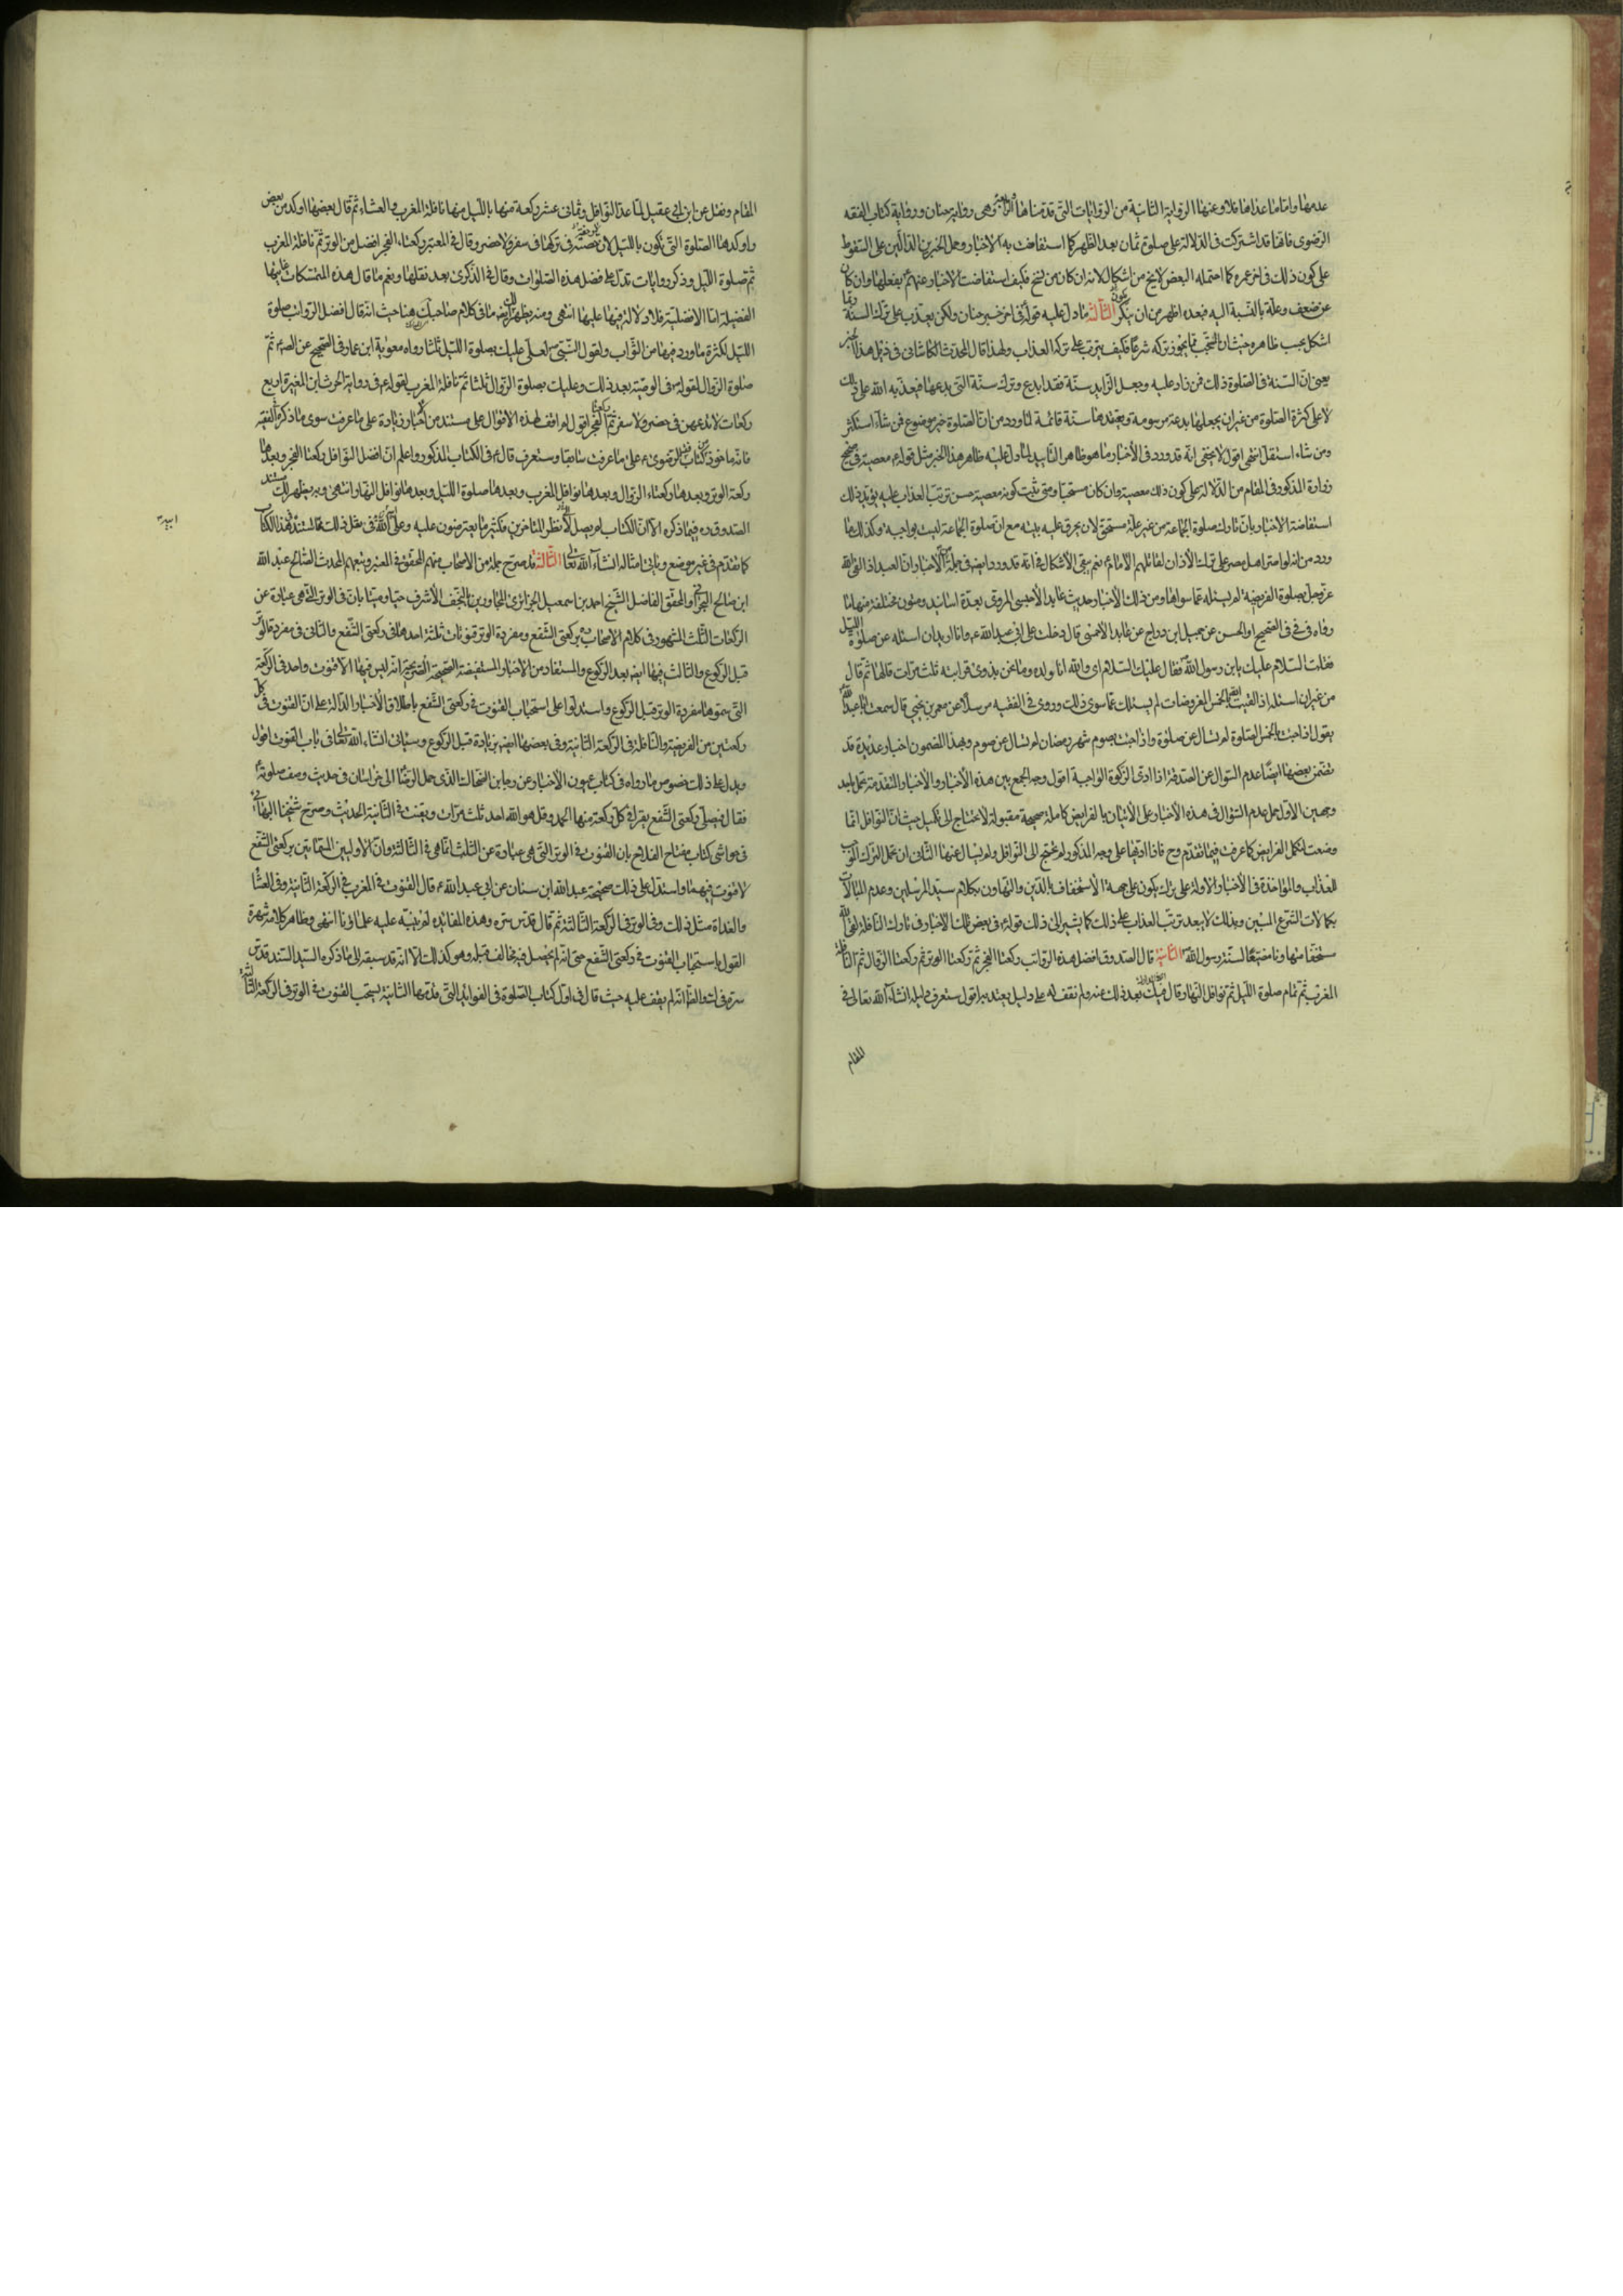 عدمها واما ما عداها فلا وعنها الرواية الثانية من الروايات التى قدمناها وهى رواية حنان ورواية كتاب الفقه
الرضوى فانها قد اشتركت فى الدلالة على صلوة ثمان بعد الظهر كما استفاضت به الاخبار وحمل الخبرين الدالين على السقوط
على كون ذلك فى اخر عمره كما احتمله البعض لا يخ من اشكال لانه ان كان من نسخ فكيف استفاضت الاخبار عنهم بفعلها وان كان
عن ضعف وعلة بالنسبة اليه فبعده اظهر من ان ينكر الثالثة ما دل عليه قوله فى اخر خبر حنان ولكن يعذب على ترك السنة
اشكل بحسب ظاهره حيث ان المستحب مما يجوز تركه شرعا فكيف يترتب على تركه العذاب ولهذا قال المحدث الكاشانى فى ذيل هذا الخبر
يعنى ان السنة فى الصلوة ذلك فمن زاد عليه وجعل الزايد سنة فقد ابدع وترك سنة التى يدعها فيعذبه الله على ذلك
لا على كثرة الصلوة من غير ان يجعلها بدعة مرسومة ويعتقدها سنة قائمة لما ورد من ان الصلوة خير موضوع فمن شاء استكثر
ومن شاء استقل انتهى اقول لا يخفى انه قد ورد فى الأخبار ما هو ظاهر التأييد لما دل عليه ظاهر هذا الخبر مثل قوله معصية فى صحيح
زرارة المذكور فى المقام من الدلالة على كون ذلك معصية وان كان مستحبا ومتى ثبت كونه معصية حسن ترتب العذاب عليه يؤيد ذلك
استفاضة الاخبار بان تارك صلوة الجماعة من غير علة مستحق لان يحرق عليه بيته مع ان صلوة الجماعة ليست بواجبه وكذلك ما
ورد من انه لو اصر اهل مصر على ترك الأذان لقاتلهم الامام نعم يبقى الأشكال فى انه قد ورد ايضا فى جملة الاخبار ان العبد اذا لقى الله
عز وجل بصلوة الفريضة لم يسئله عما سواها ومن ذلك الأخبار حديث عايد الأحمسى المروى بعدة اسانيد ومتون مختلفة منها ما
رواه فى فى الصحيح او الحسن عن جميل ابن دراج عن عايد الأحمسى قال دخلت على ابى عبد الله ع وانا اريد ان اسئله عن صلوة الليل
فقلت السلام عليك يا بن رسول الله فقال عليك السلام اى والله انا ولده وما نحن بذوى قرابته ثلث مرات قالها ثم قال
من غير ان اسئله اذا لقيت الله بالخمس المفروضات لم يسئلك عما سوى ذلك وروى فى الفقيه مرسلا عن معمر بن يحيى قال سمعت ابا عبد الله
يقول اذا جئت بالخمس الصلوة لم تسأل عن صلوة واذا جئت بصوم شهر رمضان لم تسال عن صوم وبهذا المضمون اخبار عديدة قد
تضمن بعضها ايضا عدم السؤال عن الصدقة اذا ادى الزكوة الواجبة اقول وجه الجمع بين هذه الأخبار والأخبار المتقدمة
وجهين الاول حمل عدم السؤال فى هذه الأخبار على الأتيان بالفرايض كاملة صحيحة مقبولة لا تحتاج الى تكميل حيث ان النوافل انما
وضعت لتكمل الفرايض كما عرفت فيما تقدم وح فاذا اوقعها على وجه المذكور لم يحتج الى النوافل ولم يسأل عنها الثانى ان يحمل الترك الموجب
للعذاب والمؤاخذة فى الأخبار الأولة على ترك يكون على جهة الاستخفاف بالدين والتهاون بكلام سيد المرسلين وعدم المبالات
بكمالات الشرع المبين وبذلك لا يبعد ترتب العذاب على ذلك كما يشير الى ذلك قوله فى بعض تلك الاخبار فى تارك النافلة لقى الله
مستخفا متهاونا مضيعا لسنة رسول الله الثانية قال الصدوق افضل هذه الرواتب ركعتا الفجر ثم ركعة الوتر ثم ركعتا الزوال ثم نافلة
المغرب ثم تمام صلوة الليل ثم نوافل النهار وقال بعد ذلك عنه ولم نقف له على دليل يعتد به اقول ستعرف دليله انشاء الله تعالى فى
المقام
المقام ونقل عن ابن ابى عقيل لما عد النوافل وثمانى عشر ركعة منها بالليل منها نافلة المغرب والعشاء ثم قال بعضها اوكد من بعض
واوكدها الصلوة التى تكون بالليل لا رخصة فى تركها فى سفر ولا حضر وقال فى المعتبر ركعتا الفجر افضل من الوتر ثم نافلة المغرب
ثم صلوة الليل وذكر روايات تدل على فضل هذه الصلوات وقال فى الذكرى بعد نقلها ونعم ما قال هذه المتمسكات غايتها
الفضيلة اما الافضلية فلا دلالة فيها عليها انتهى ومنه يظهر لك ما فى كلام صاحب هنا حيث انه قال افضل الرواتب صلوة
الليل لكثرة ما ورد فيها من الثواب ولقول النبى ص لعلى عليك بصلوة الليل ثلثا رواه معوية ابن عمار فى الصحيح عن الص ثم
صلوة الزوال لقوله فى الوصية بعد ذلك وعليك بصلوة الزوال ثلثا ثم نافلة المغرب لقوله ع فى رواية الحرث ابن المغيرة اربع
ركعات لا تدعهن فى حضر ولا سفر ثم ركعتا الفجر اقول لم اقف لهذه الاقوال على مستند من الاخبار زيادة على ما عرفت سوى ما ذكره الفقيه
فانه ماخوذ من كتاب الفقه الرضوى على ما عرفت سابقا وستعرف قال فى الكتاب المذكور واعلم ان افضل النوافل ركعتا الفجر وبعدها
ركعة الوتر وبعدها ركعتا الزوال وبعدها نوافل المغرب وبعدها صلوة الليل وبعدها نوافل النهار انتهى وبه يظهر لك مستند
الصدوق ره فيما ذكره الا ان الكتاب لم يصل الى نظر المتاخرين فكثيرا ما يعترضون عليه وعلى ابيه فى مثل ذلك مما مستنده هذا الكتاب
كما تقدم فى غير موضع ويأتى امثاله انشاء الله تعالى الثالثة قد صرح جملة من الاصحاب منهم المحقق فى المعتبر وتبعهم المحدث الصالح عبد الله
ابن صالح البحرانى والمحقق الفاضل الشيخ احمد بن اسمعيل الجزائرى المجاور بالنجف الأشرف حيا وميتا بان فى الوتر التى هى عبارة عن
الركعات الثلث المشهور فى كلام الاصحاب بركعتى الشفع ومفردة الوتر قنوتات ثلثة احدها فى ركعتى الشفع والثانى فى مفردة الوتر
قبل الركوع والثالث فيها ايضا بعد الركوع والمستفاد من الأخبار المستفيضة الصحيحة الصريحة انه ليس فيها الا قنوت واحد فى الركعة
التى سموها مفردة الوتر قبل الركوع واستدلوا على استحباب القنوت فى ركعتى الشفع باطلاق الأخبار الدالة على ان القنوت فى كل
ركعتين من الفريضة والنافلة فى الركعة الثانية وفى بعضها ايضا بزيادة قبل الركوع وسياتى انشاء الله تعالى فى باب القنوت اقول
ويدل على ذلك خصوص ما رواه فى كتاب عيون الأخبار عن رجا بن ابى الضحاك الذى حمل الرضا الى خراسان فى حديث وصف صلوته
فقال فيصلى ركعتى الشفع يقرا فى كل ركعة منها الحمد وقل هو الله احد ثلث مرات ويقنت فى الثانية الحديث وصرح شيخنا البهائى
فى حواشى كتاب مفتاح الفلاح بان القنوت فى الوتر التى هى عبارة عن الثلث انما هى فى الثالثة وان الاوليين المسماتين بركعتى الشفع
لا قنوت فيهما واستدل على ذلك صحيحة عبد الله ابن سنان عن ابى عبد الله ع قال القنوت فى المغرب فى الركعة الثانية وفى العشا
والغداة مثل ذلك وفى الوتر فى الركعة الثالثة ثم قال قدس سره وهذه الفائدة لم ينبه عليه علماؤنا انتهى وظاهره كلامه شهرة
القول باستحباب القنوت فى ركعتى الشفع حتى انه لم يحصل فيه مخالف قبله وهو كذلك الا انه قد سبقه الى ما ذكره السيد السند قدس
سره فى ك والظ انه لم يقف عليه حيث قال فى اول كتاب الصلوة فى الفوائد التى قدمها الثانية يستحب القنوت فى الوتر فى الركعة الثالثة